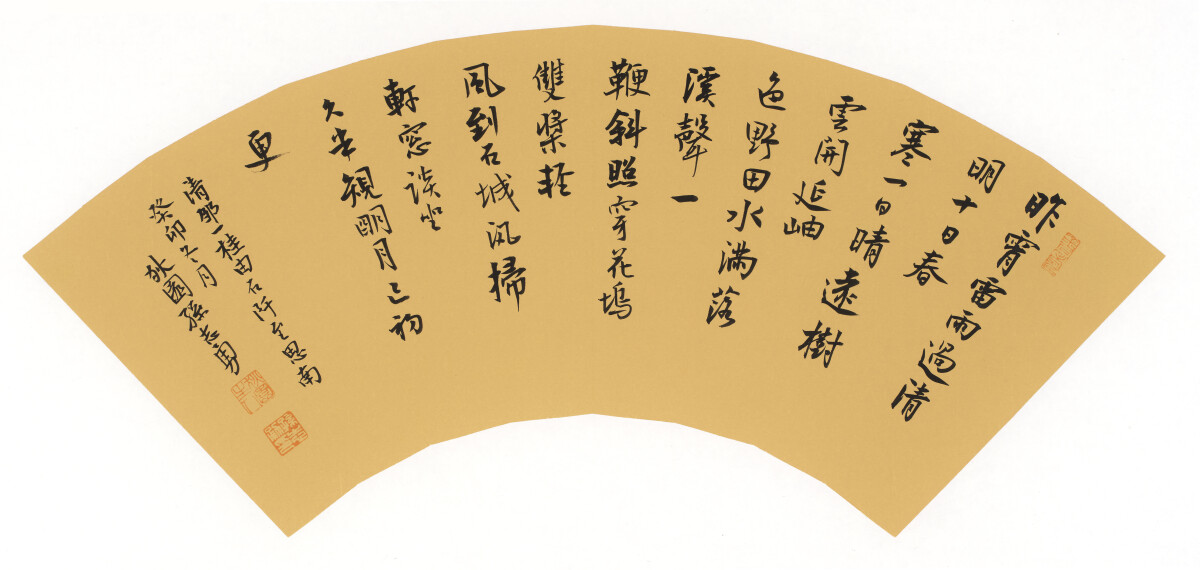 昨宵雷雨過清
明十日春
寒一日晴遠樹
雲開延岫
色野田水滿落
溪聲一
鞭斜照穿花塢
雙槳輕
風到石城汛掃
軒窓談坐
久半規酮月已初
更
清鄂一桂由石阡至思南
癸卯冬月
狄園孫志勇